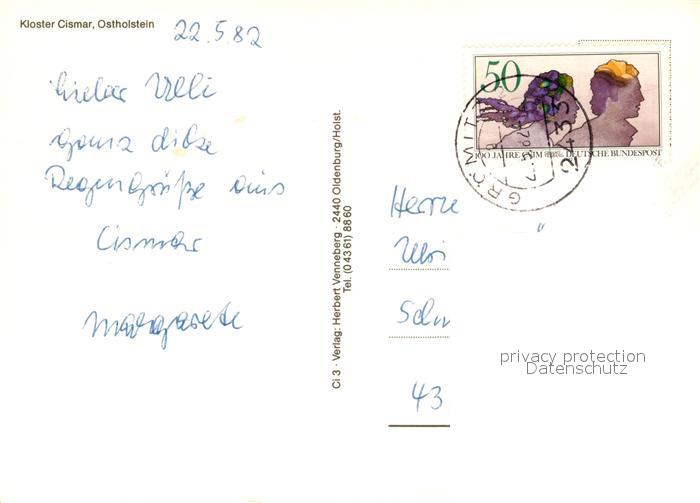 Kloster Cismar, Ostholstein
22.5.82
Lieber Ulli
ganz dicke
Regengrüße aus
Cismar
Margarete
Ci 3 · Verlag: Herbert Venneberg · 2440 Oldenburg/Holst.
Tel. (0 43 61) 88 60
50
100 JAHRE DEUTSCHE BUNDESPOST
GRÖMITZ
2433
Herrn
43
privacy protection
Datenschutz